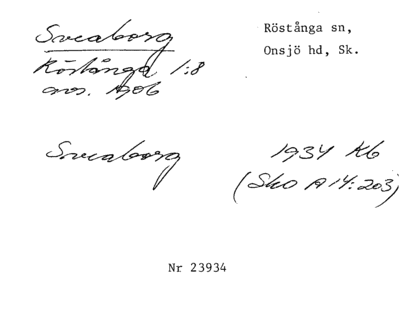 Sveaborg
Röstånga sn,
Onsjö hd, Sk.
Röstånga 1:8
avs. 1906
Sveaborg 1934 Kb
(Sko A 14:203)
Nr 23934